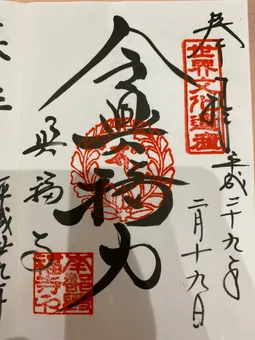 奉拝 平成二十九年
二月十九日
世界文化遺産
令興福力
興福寺
平成廿九年